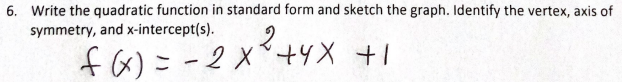 6. Write the quadratic function in standard form and sketch the graph. Identify the vertex, axis of
symmetry, and x-intercept(s).
f(x) = -2x²+4x +1